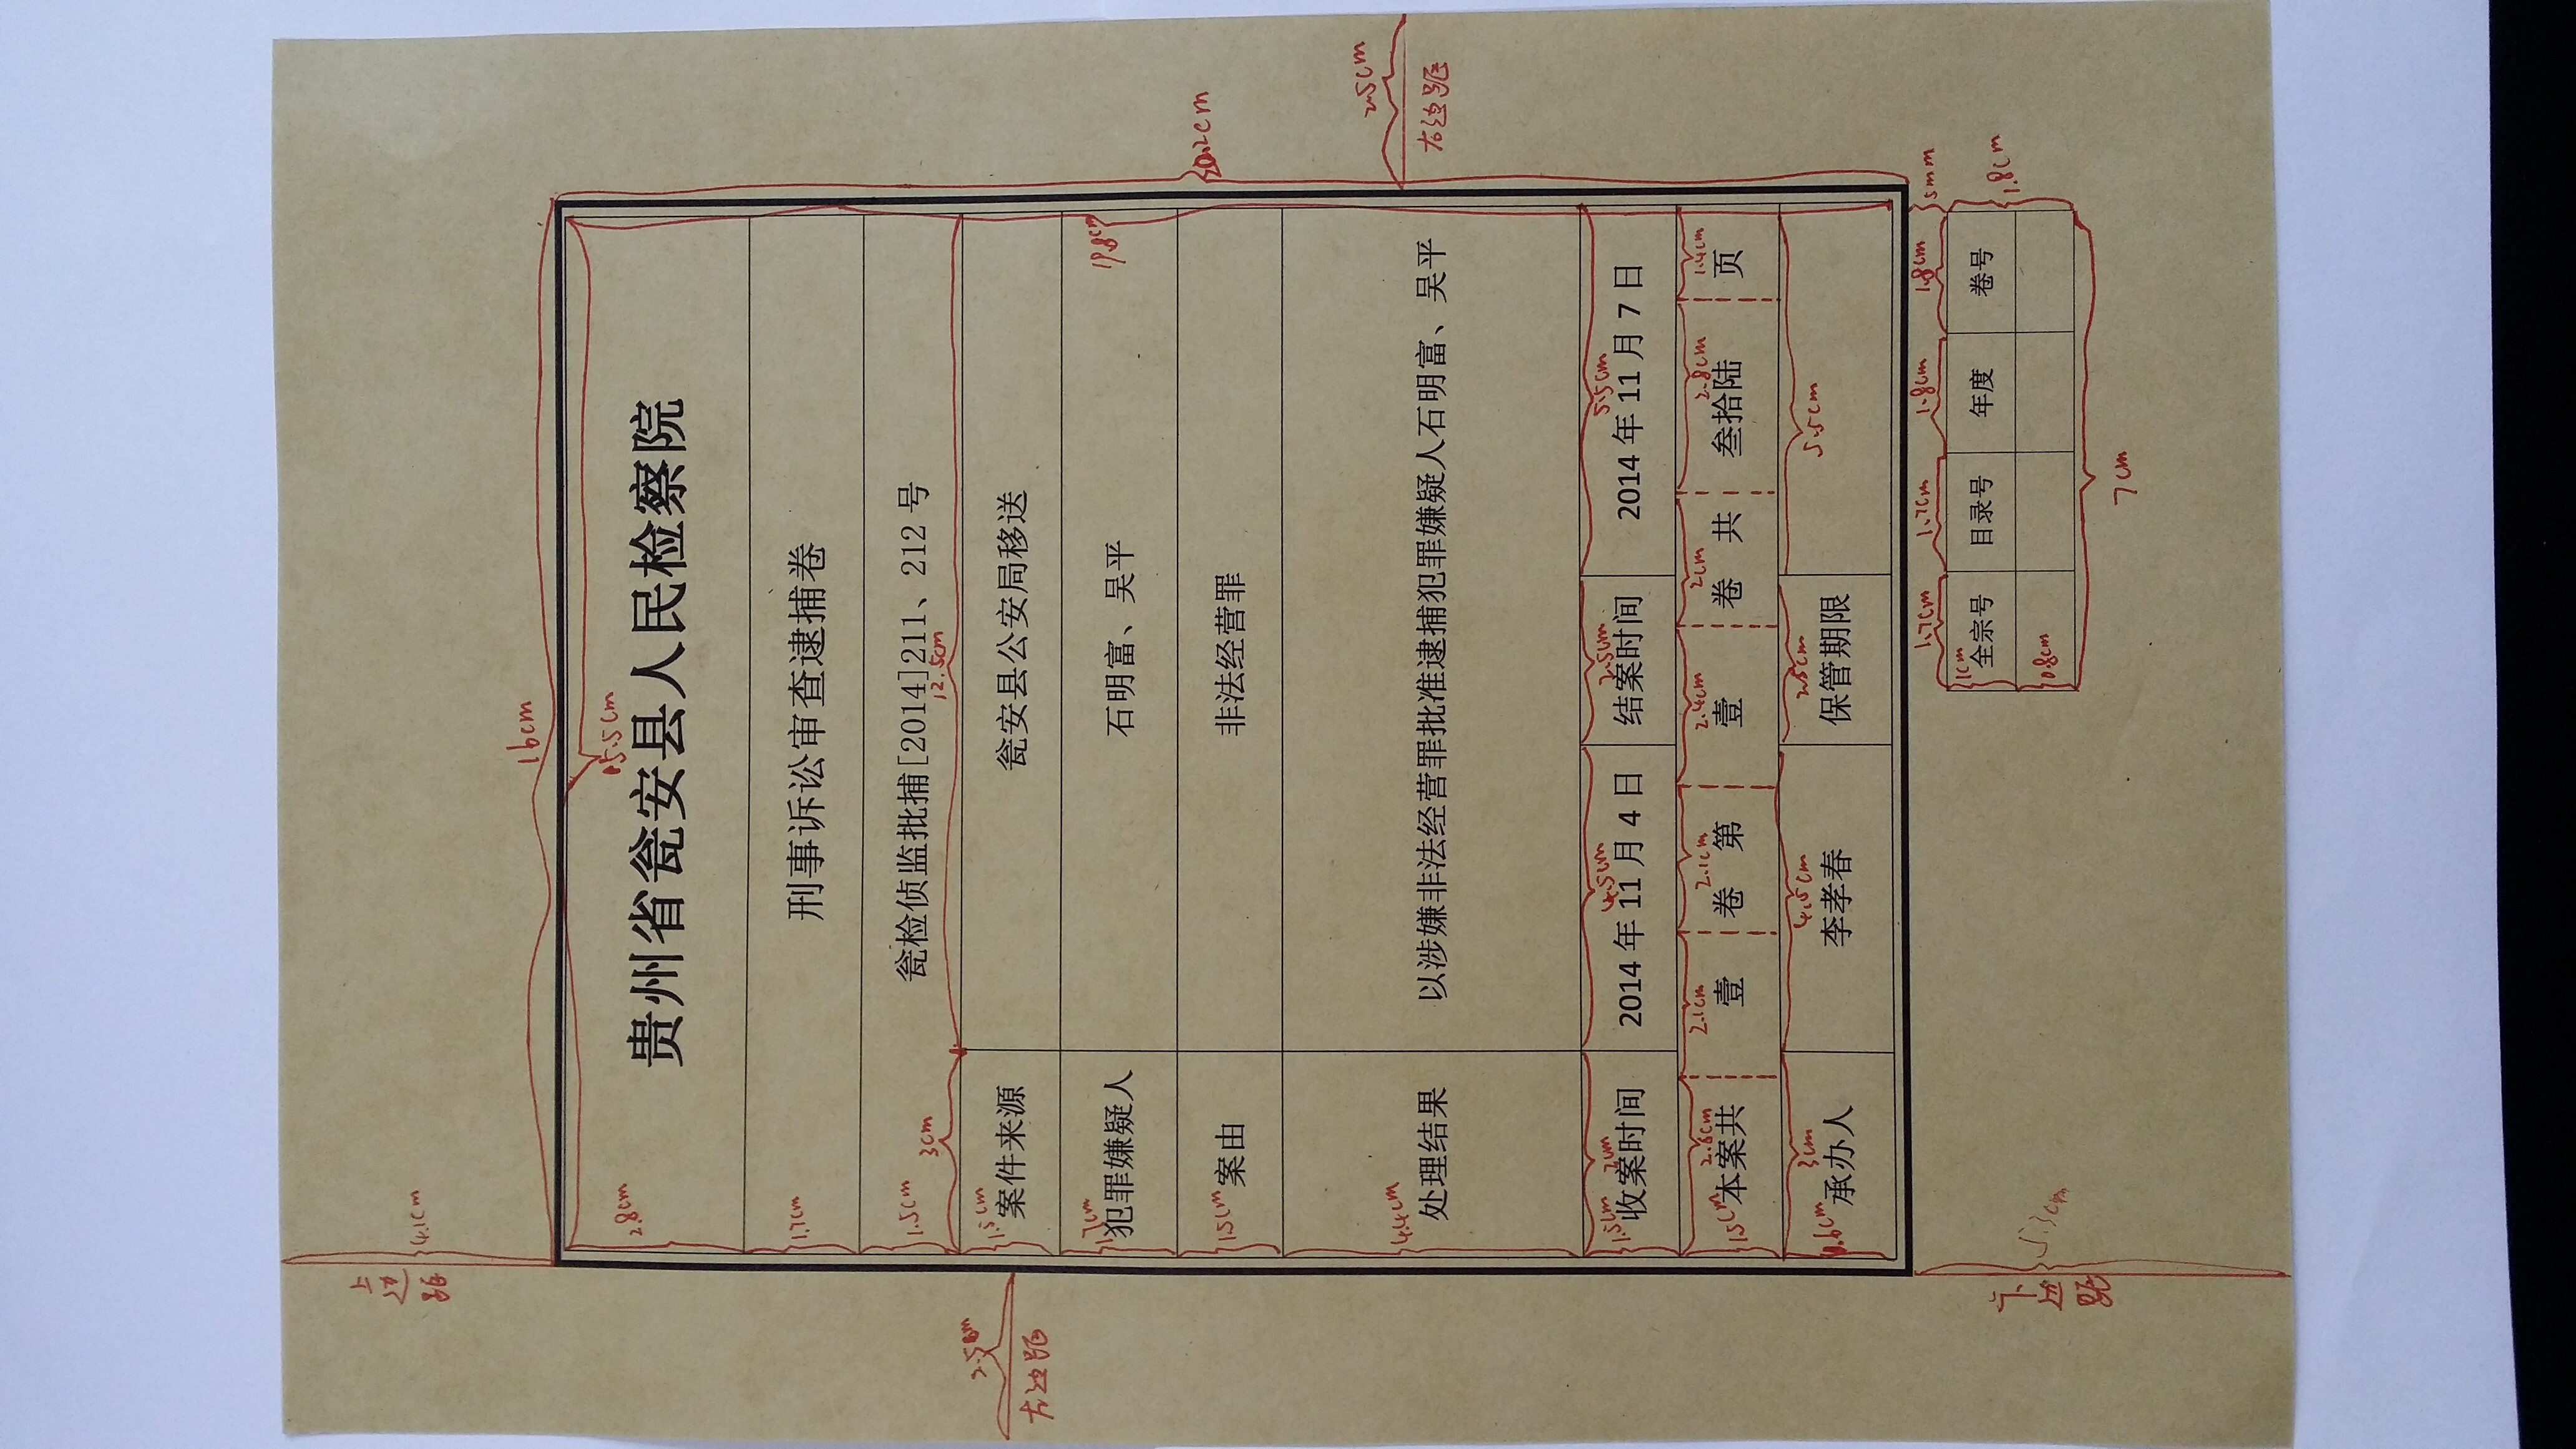 上边距
4.1cm
16cm
15.5cm
2.8cm
贵州省瓮安县人民检察院
1.7cm
刑事诉讼审查逮捕卷
1.5cm
瓮检侦监批捕[2014]211、212 号
3cm 12.5cm
1.5cm 案件来源 瓮安县公安局移送
1.7cm 犯罪嫌疑人 石明富、吴平 19.8cm
1.5cm 案由 非法经营罪
20.2cm
2.5cm 左边距
2.5cm 右边距
4.4cm 处理结果 以涉嫌非法经营罪批准逮捕犯罪嫌疑人石明富、吴平
4.5cm 2.5cm 5.5cm
1.5cm 收案时间 2014 年 11 月 4 日 结案时间 2014 年 11 月 7 日
2.6cm 2.1cm 2.1cm 2.4cm 2cm 2.8cm 1.4cm
1.5cm 本案共 壹 卷 第 壹 卷 共 叁拾陆 页
3cm 4.5cm 2.5cm 5.5cm
1.6cm 承办人 李孝春 保管期限
5mm
1.7cm 1.7cm 1.8cm 1.8cm
1cm 全宗号 目录号 年度 卷号 1.8cm
0.8cm
7cm
下边距